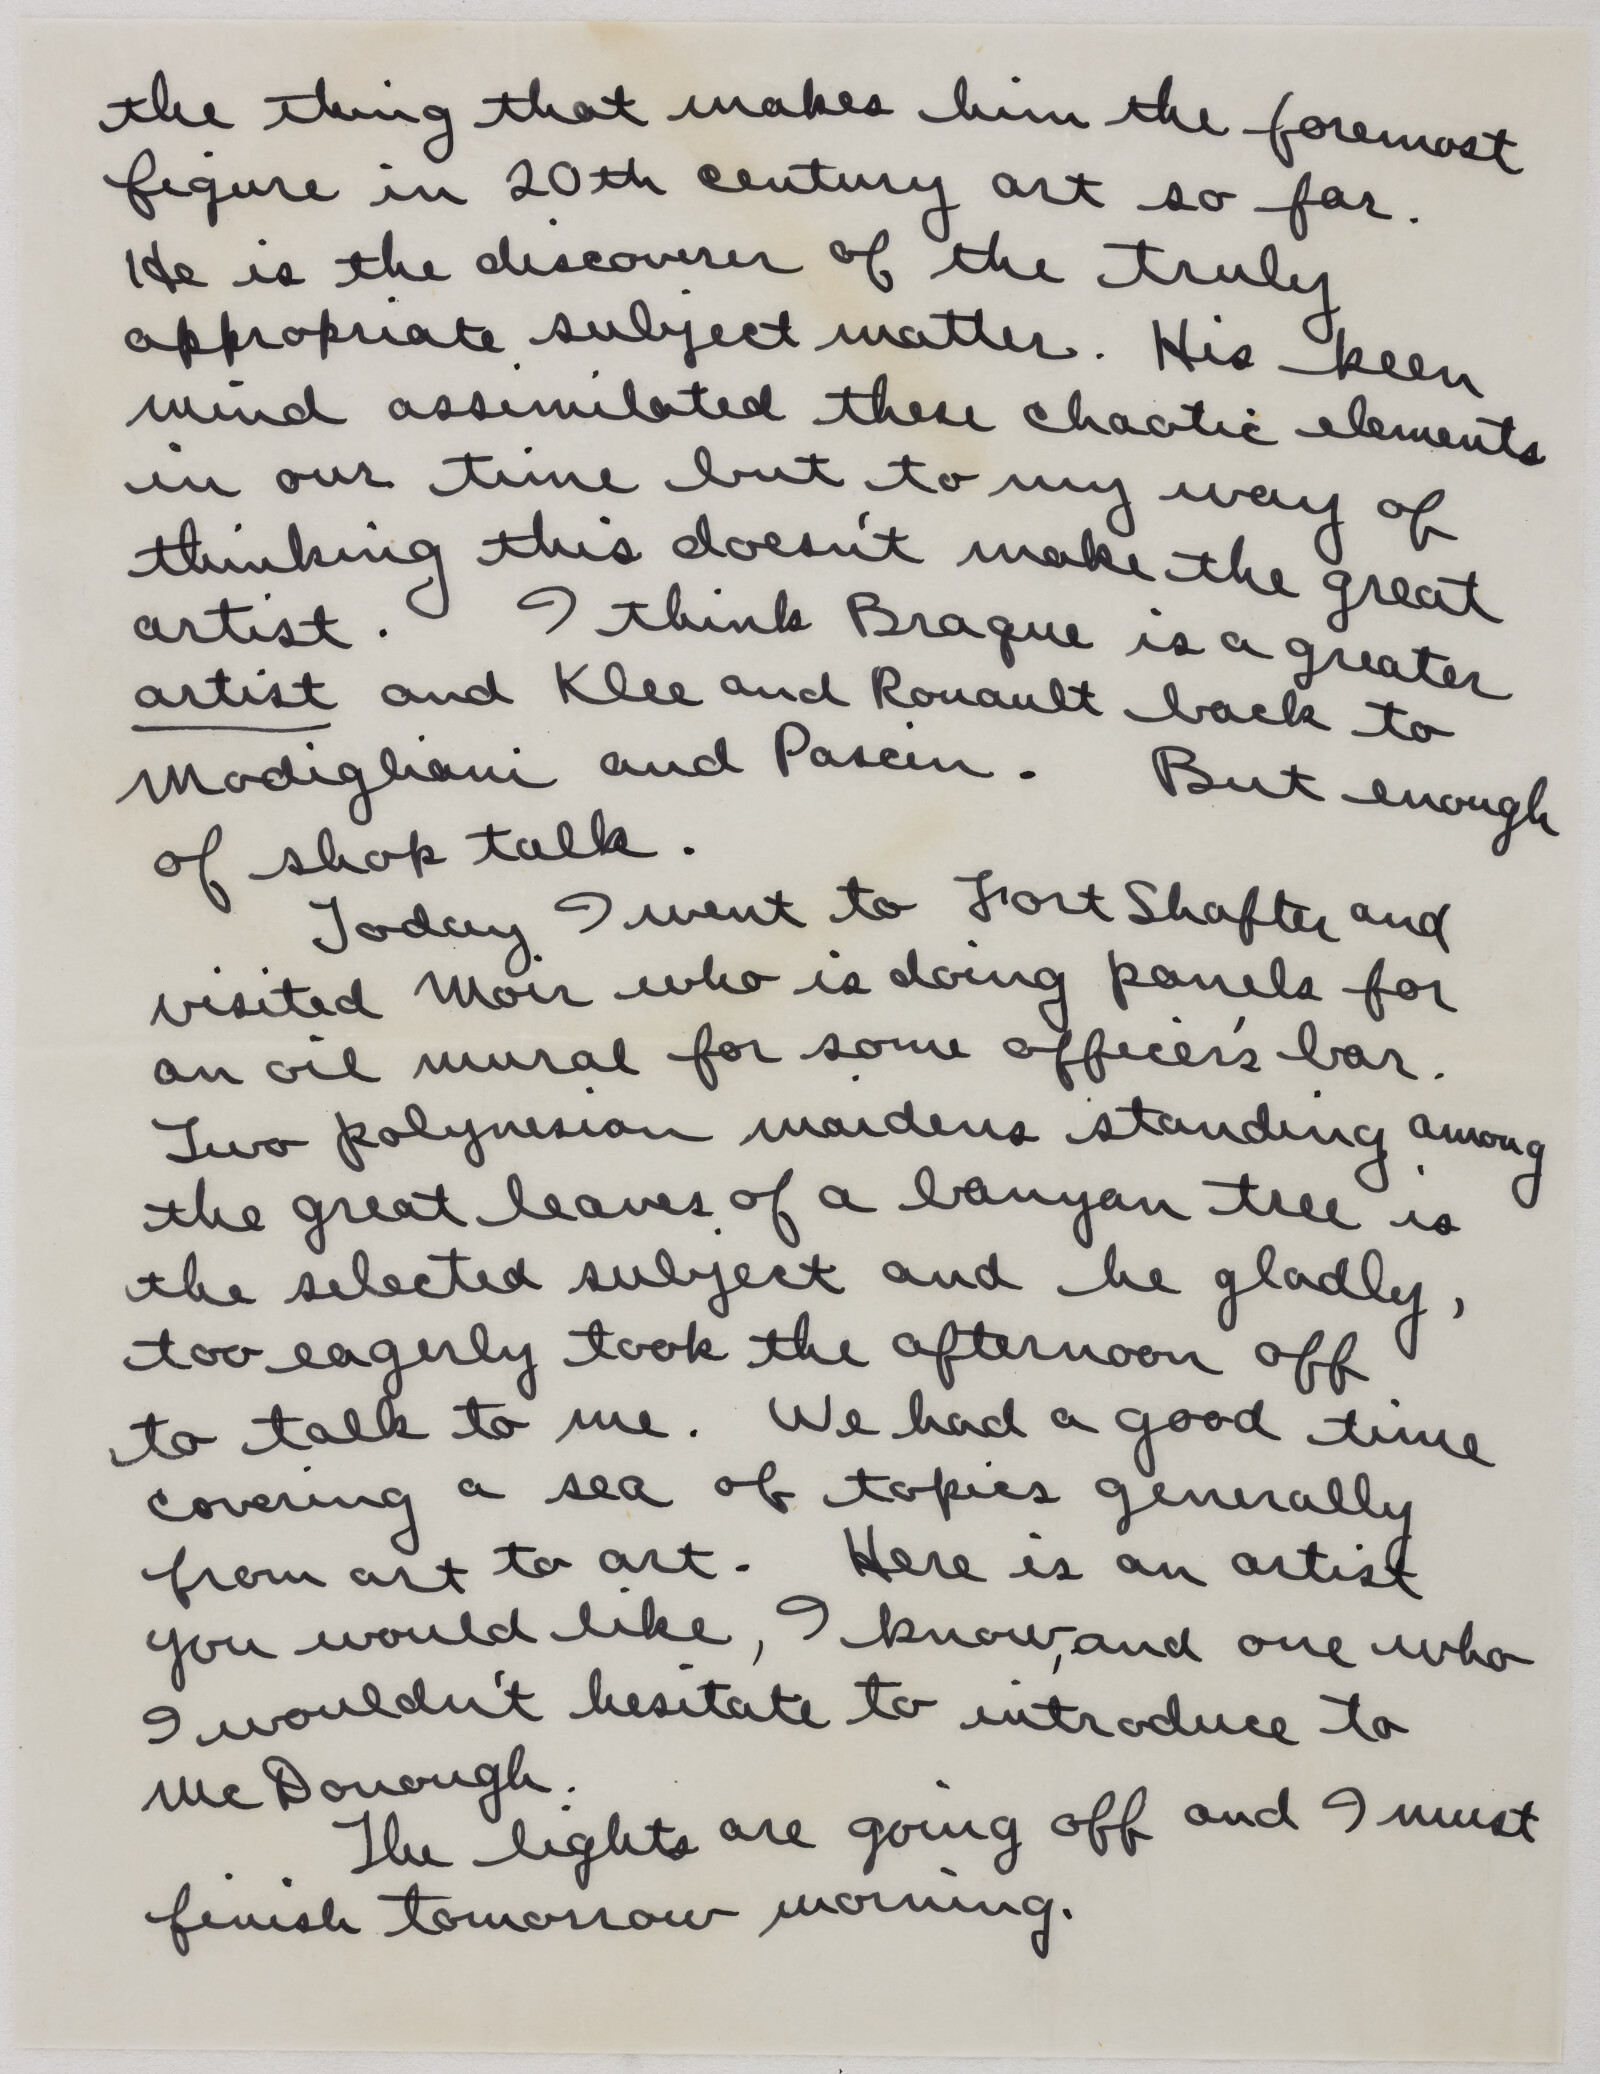 the thing that makes him the foremost
figure in 20th century art so far.
He is the discoverer of the truly
appropriate subject matter. His keen
mind assimilated these chaotic elements
in our time but to my way of
thinking this doesn't make the great
artist. I think Braque is a greater
artist and Klee and Rouault back to
Modigliani and Pascin. But enough
of shop talk.
Today I went to Fort Shafter and
visited Moir who is doing panels for
an oil mural for some officer's bar.
Two polynesian maidens standing among
the great leaves of a banyan tree is
the selected subject and he gladly,
too eagerly took the afternoon off
to talk to me. We had a good time
covering a sea of topics generally
from art to art. Here is an artist
you would like, I know, and one who
I wouldn't hesitate to introduce to
McDonough.
The lights are going off and I must
finish tomorrow morning.